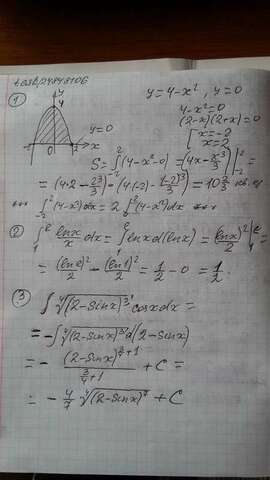 ①
y = 4-x², y = 0
4-x²=0
(2-x)(2+x)=0
[x=-2
x=2
y
4
y=0
-2 0 2 x
S = ∫₋₂² (4-x²-0) = (4x - x³/3)|₋₂² =
= (4·2 - 2³/3) - (4(-2) - (-2)³/3) = 10 2/3 кв. ед
∫₋₂² (4-x²)dx = 2 ∫₀² (4-x²)dx
② ∫₁ᵉ lnx/x dx = ∫₁ᵉ lnx d(lnx) = (lnx)²/2 |₁ᵉ =
= (ln e)²/2 - (ln 1)²/2 = 1/2 - 0 = 1/2.
③
∫ ⁴√(2-sinx)³ cosx dx =
= -∫ ⁴√(2-sinx)³ d(2-sinx)
= - (2-sinx)^(3/4+1) / (3/4+1) + C =
= - 4/7 ⁴√(2-sinx)⁷ + C